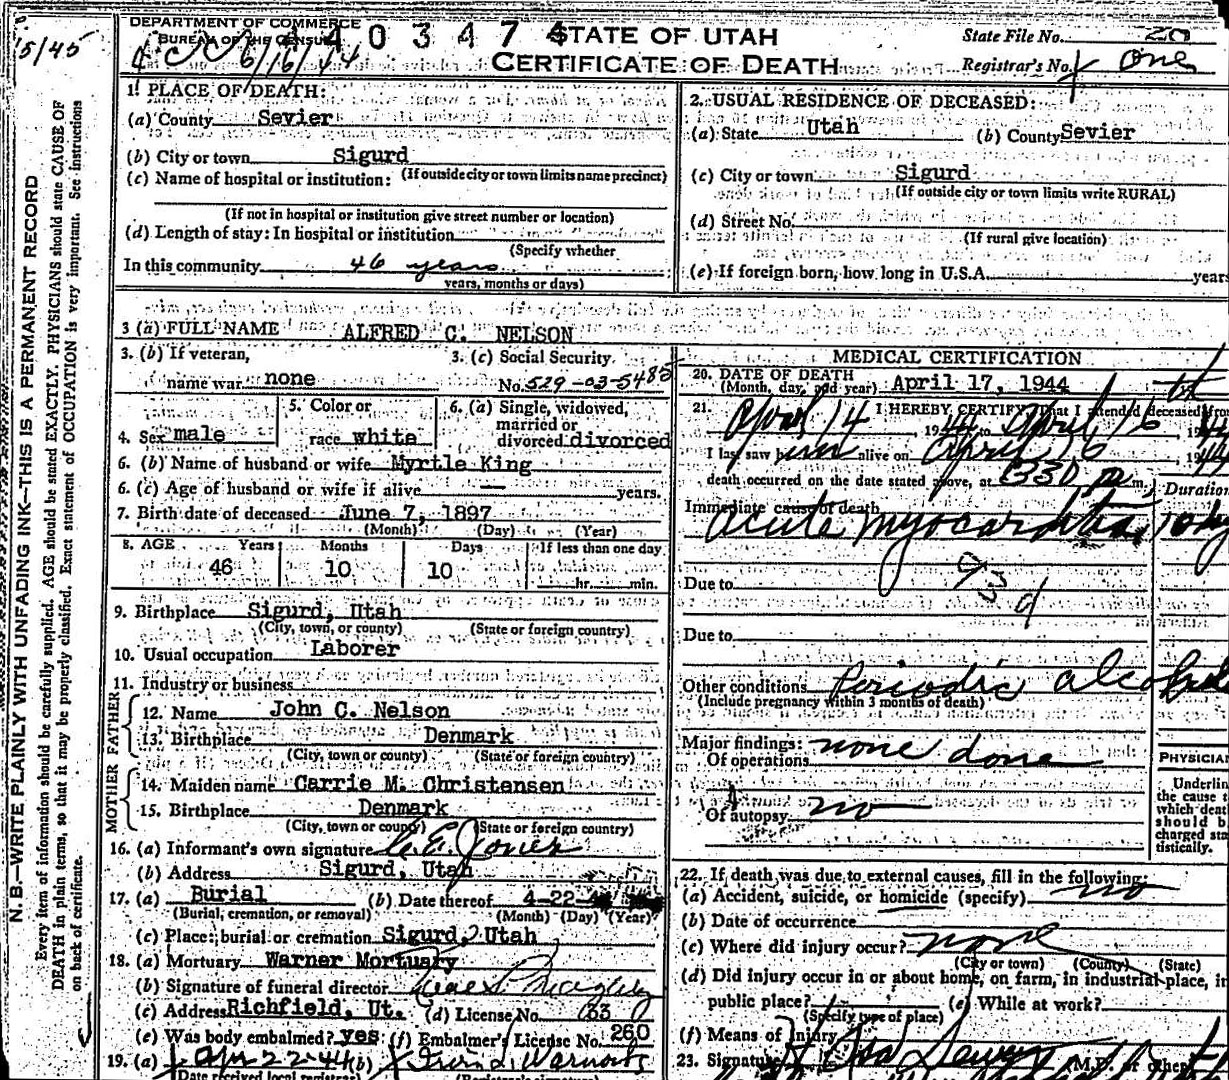 5/45
DEPARTMENT OF COMMERCE
BUREAU OF THE CENSUS
4 0 3 4 7 4
6/16/44
STATE OF UTAH
CERTIFICATE OF DEATH
State File No. 20
Registrar's No. One
N. B.—WRITE PLAINLY WITH UNFADING INK—THIS IS A PERMANENT RECORD
Every item of information should be carefully supplied. AGE should be stated EXACTLY. PHYSICIANS should state CAUSE OF
DEATH in plain terms, so that it may be properly classified. Exact statement of OCCUPATION is very important. See instructions
on back of certificate.
1. PLACE OF DEATH:
(a) County Sevier
(b) City or town Sigurd
(If outside city or town limits name precinct)
(c) Name of hospital or institution:
(If not in hospital or institution give street number or location)
(d) Length of stay: In hospital or institution
(Specify whether
In this community 46 years
years, months or days)
2. USUAL RESIDENCE OF DECEASED:
(a) State Utah (b) County Sevier
(c) City or town Sigurd
(If outside city or town limits write RURAL)
(d) Street No.
(If rural give location)
(e) If foreign born, how long in U.S.A. years
3 (a) FULL NAME ALFRED C. NELSON
3. (b) If veteran,
name war none
3. (c) Social Security
No. 529-03-5485
4. Sex male
5. Color or
race white
6. (a) Single, widowed,
married or
divorced divorced
6. (b) Name of husband or wife Myrtle King
6. (c) Age of husband or wife if alive — years.
7. Birth date of deceased June 7, 1897
(Month) (Day) (Year)
8. AGE Years Months Days If less than one day
46 10 10 hr. min.
9. Birthplace Sigurd, Utah
(City, town, or county) (State or foreign country)
10. Usual occupation Laborer
11. Industry or business
FATHER
12. Name John C. Nelson
13. Birthplace Denmark
(City, town or county) (State or foreign country)
MOTHER
14. Maiden name Carrie M. Christensen
15. Birthplace Denmark
(City, town or county) (State or foreign country)
16. (a) Informant's own signature
(b) Address Sigurd, Utah
17. (a) Burial (b) Date thereof 4-22-
(Burial, cremation, or removal) (Month) (Day) (Year)
(c) Place: burial or cremation Sigurd, Utah
18. (a) Mortuary Warner Mortuary
(b) Signature of funeral director
(c) Address Richfield, Ut. (d) License No. 63
(e) Was body embalmed? yes (f) Embalmer's License No. 260
19. (a) Apr 22-44 (b)
(Date received local registrar)
MEDICAL CERTIFICATION
20. DATE OF DEATH
(Month, day, and year) April 17, 1944
21. I HEREBY CERTIFY, That I attended deceased from
April 14, 1944 to April 16, 1944
I last saw him alive on April 16 1944
death occurred on the date stated above, at 330 p m.
Duration
Immediate cause of death
acute myocarditis
93d
Due to
Due to
Other conditions Periodic
(Include pregnancy within 3 months of death)
Major findings:
Of operations none done
Of autopsy no
PHYSICIAN
Underlin
the cause t
which deat
should b
charged sta
tistically.
22. If death was due to external causes, fill in the following:
(a) Accident, suicide, or homicide (specify) no
(b) Date of occurrence
(c) Where did injury occur? none
(City or town) (County) (State)
(d) Did injury occur in or about home, on farm, in industrial place, in
public place? (e) While at work?
(Specify type of place)
(f) Means of Injury
23. Signature (M.D. or other)